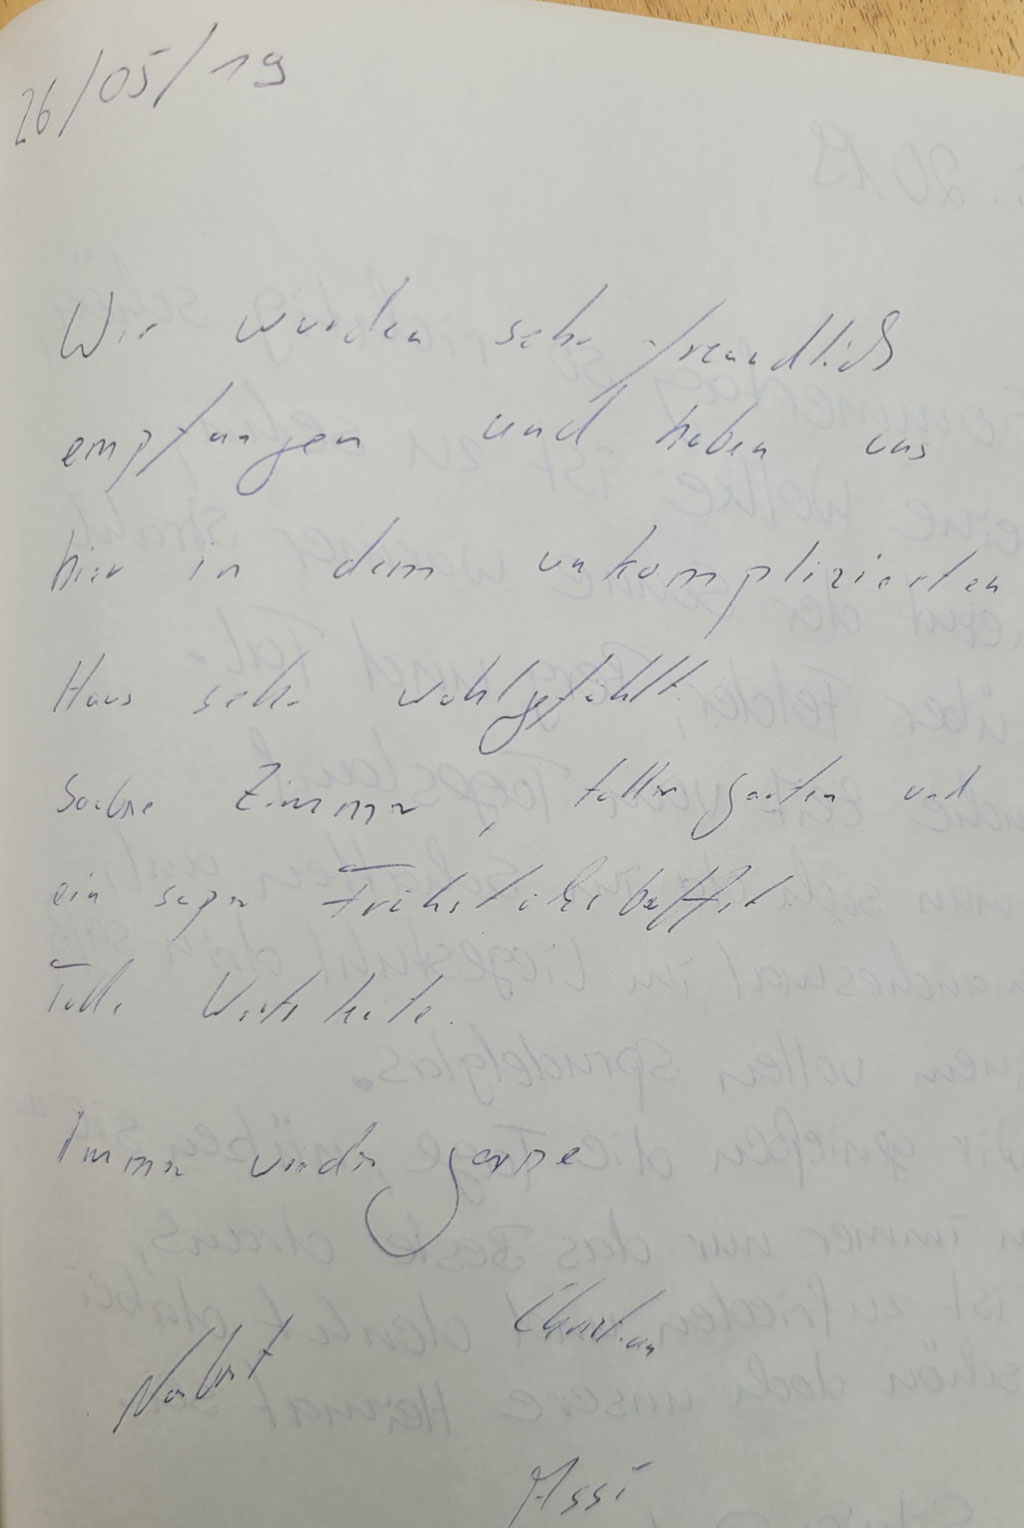 26/05/19
Wir wurden sehr freundlich
empfangen und haben uns
hier in dem unkomplizierten
Haus sehr wohlgefühlt.
Saubre Zimmer, toller Garten und
ein super Frühstücksbuffet.
Tolle Wirtsleute.
Immer wieder gerne
Christian
Norbert
Assi